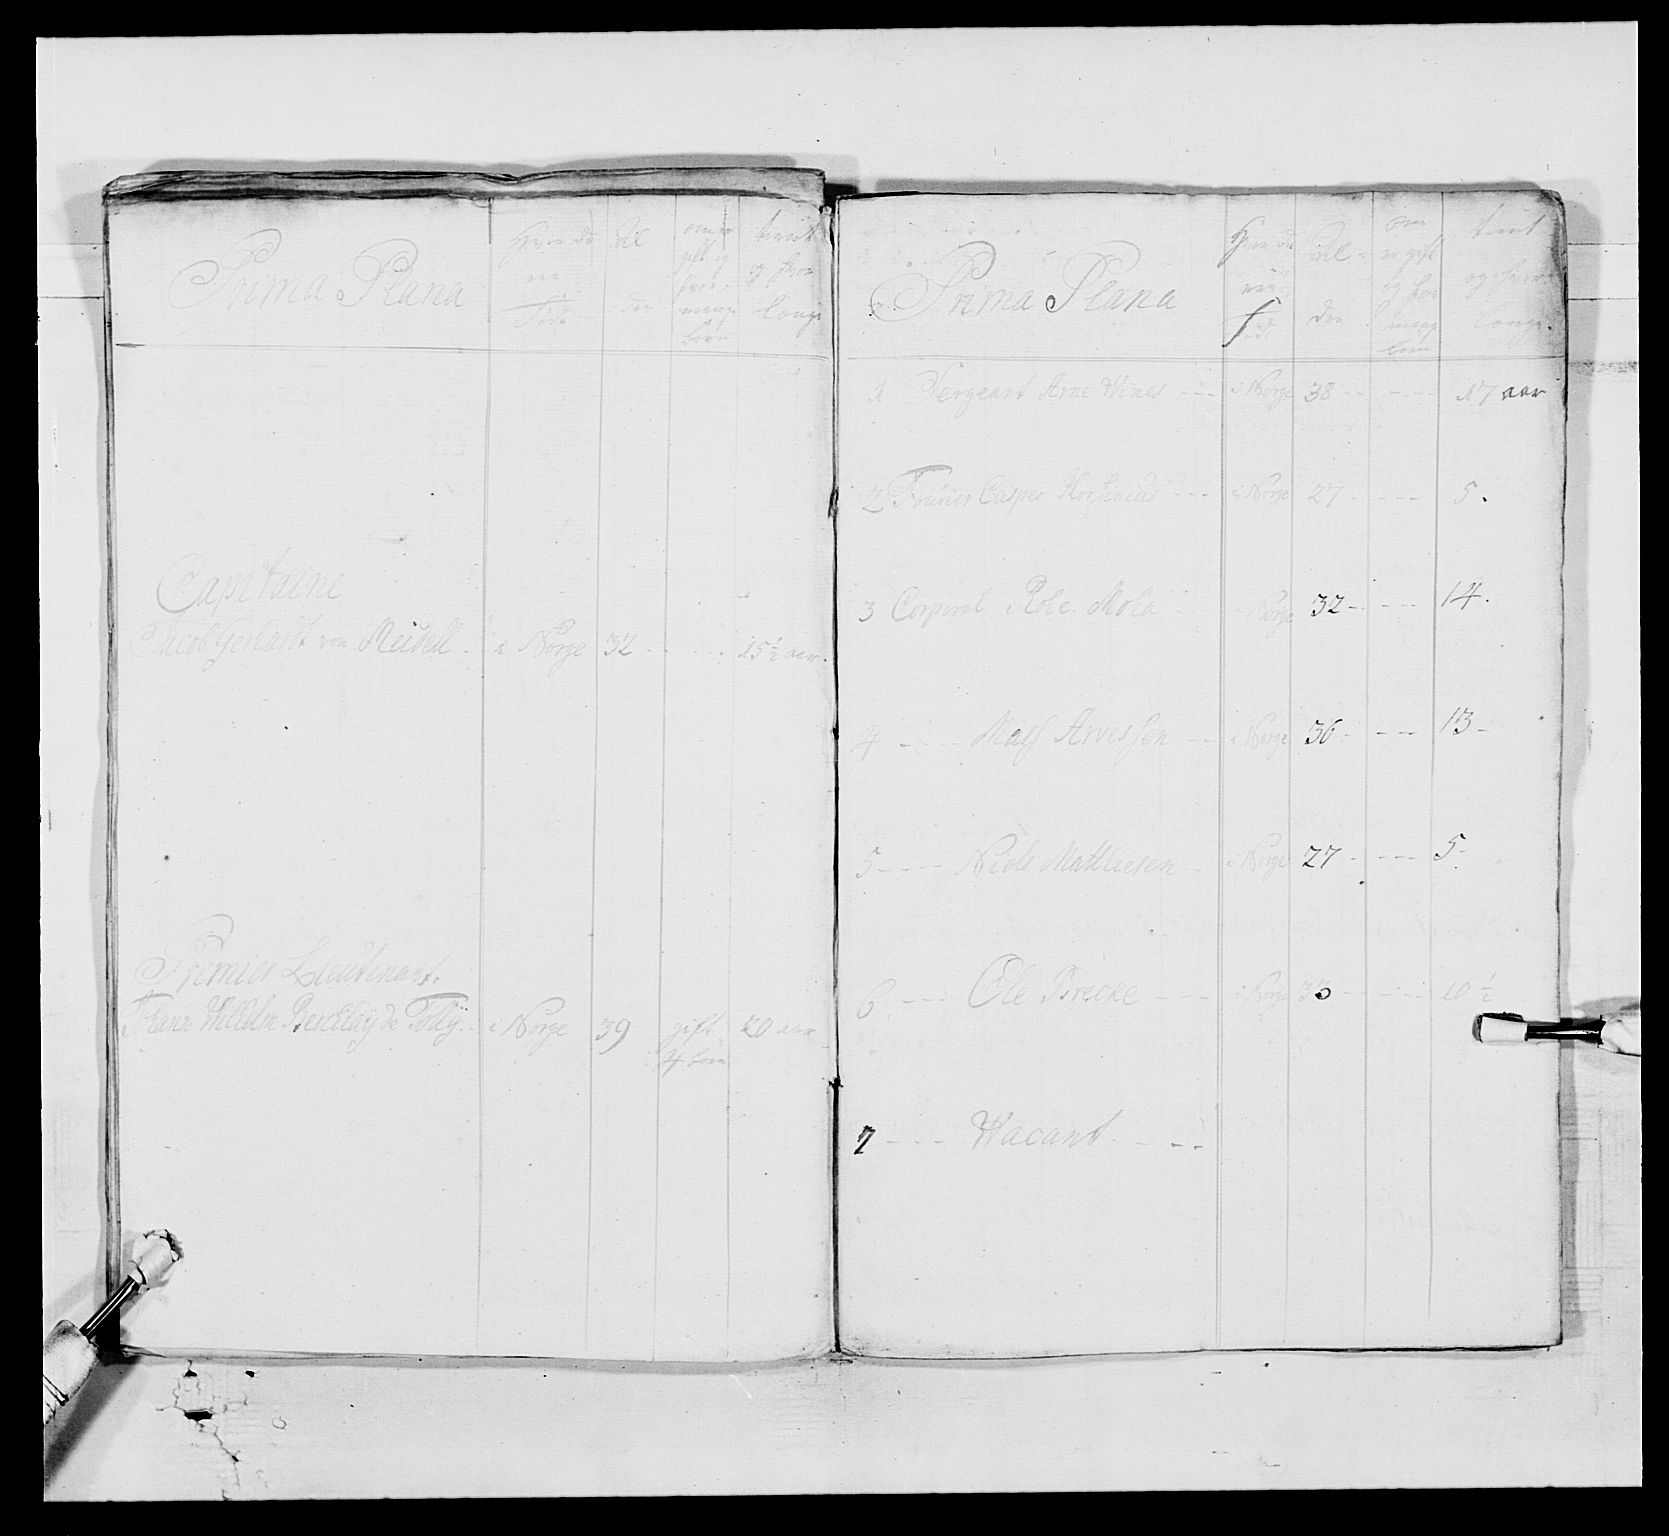 Prima Plana
Hvor de
ere
Føde
Al
der
om er
gift og
hvor
mange
børn
tient
og hvor
længe
Capitaine
Jacob Gerhardt von Meidell
i Norge 32 15 1/2 aar.
Premier Lieutenant.
Johann Wilhelm Berchlaÿ de Tollÿ
i Norge 39 gift 20 aar
4 børn
Prima Plana
Hvor de
ere
fød
Al-
der
om
er gift
og hvor
mang
børn
tient
og hvor
længe.
1 Sergeant Arne Wines --- i Norge 38 -- --- 17 aar
2 Fourier Casper --- i Norge 27 - --- 5.
3 Corporal Role Moha - i Norge 32 - --- 14.
4 ---- Mass Arvessen --- i Norge 36 - --- 13 -
5 ---- Niels Mathiesen - i Norge 27 - --- 5-
6 --- Ole Brecke --- i Norge 30 -- --- 10 1/2
7 --- Wacant - - --